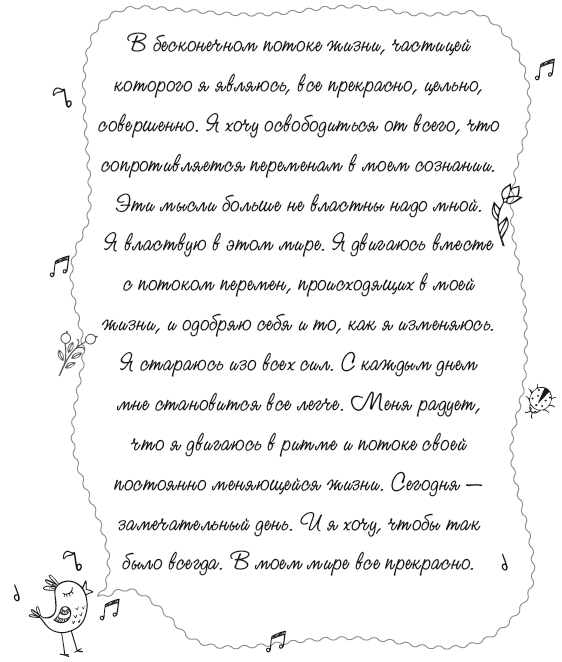 В бесконечном потоке жизни, частицей
которого я являюсь, все прекрасно, цельно,
совершенно. Я хочу освободиться от всего, что
сопротивляется переменам в моем сознании.
Эти мысли больше не властны надо мной.
Я властвую в этом мире. Я двигаюсь вместе
с потоком перемен, происходящих в моей
жизни, и одобряю себя и то, как я изменяюсь.
Я стараюсь изо всех сил. С каждым днем
мне становится все легче. Меня радует,
что я двигаюсь в ритме и потоке своей
постоянно меняющейся жизни. Сегодня —
замечательный день. И я хочу, чтобы так
было всегда. В моем мире все прекрасно.